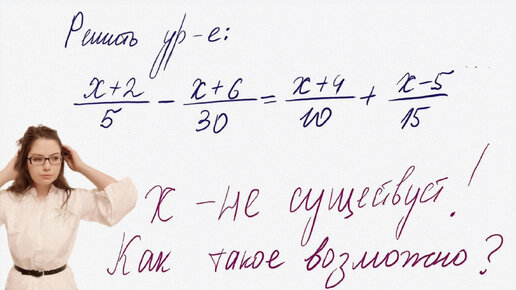 Решить ур-е:
(x+2)/5 - (x+6)/30 = (x+4)/10 + (x-5)/15
x - не существует!
Как такое возможно?